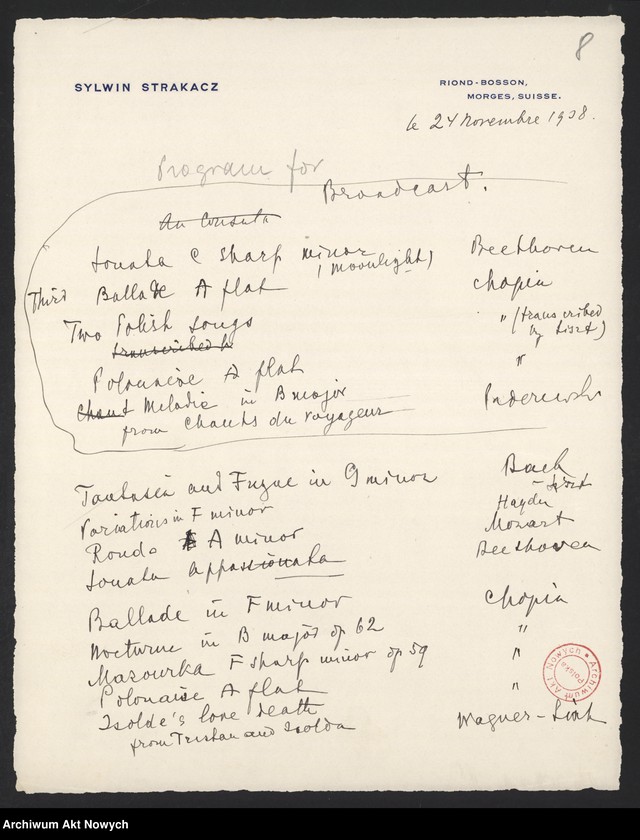 8
SYLWIN STRAKACZ
RIOND-BOSSON,
MORGES, SUISSE.
le 24 Novembre 1938.
Program for
Broadcast.
Sonata C sharp minor Beethoven
(Moonlight)
Third Ballade A flat Chopin
Two Polish songs " (transcribed
by Liszt)
transcribed b
Polonaise A flat "
Chant Melodie in B major Paderewski
from Chants du voyageur
Fantasia and Fugue in G minor Bach
- Liszt
Variations in F minor Haydn
Rondo A minor Mozart
Sonata Appassionata Beethoven
Ballade in F minor Chopin
Nocturne in B major op 62 "
Mazourka F sharp minor op 59 "
Polonaise A flat "
Isolde's love death Wagner - Liszt
from Tristan and Isolda
Archiwum Akt Nowych
Polska
Archiwum Akt Nowych